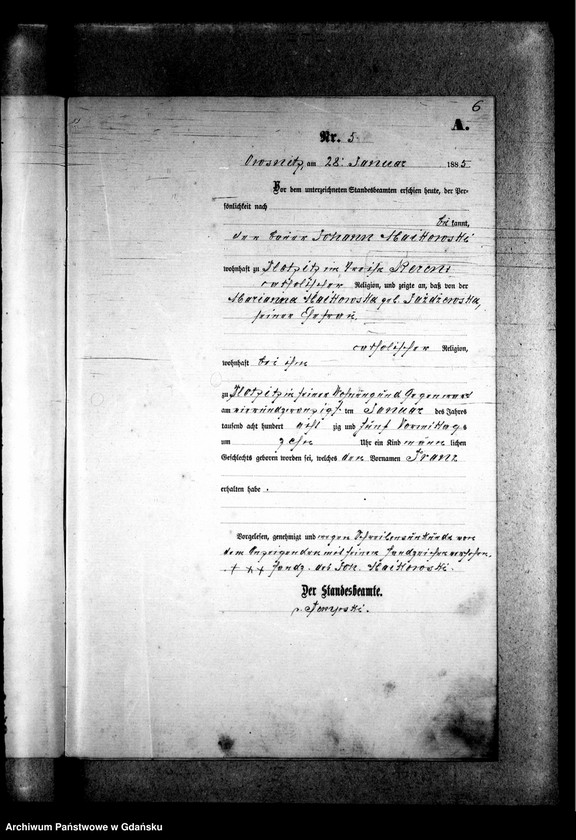 6
A.
Nr. 5
am 28. Januar 1885
Vor dem unterzeichneten Standesbeamten erschien heute, der Per-
sönlichkeit nach
be kannt,
der Johann Maikowski
wohnhaft zu im Kreise
catholischer Religion, und zeigte an, daß von der
Marianna Maikowska geb.
seiner Ehefrau
catholischer Religion,
wohnhaft bei ihm
zu in seiner Wohnung und Gegenwart
am vierundzwanzigs ten Januar des Jahres
tausend acht hundert acht zig und fünf Vormittags
um zehn Uhr ein Kind männ lichen
Geschlechts geboren worden sei, welches den Vornamen Franz
erhalten habe .
Vorgelesen, genehmigt und wegen Schreibensunkunde von
dem Anzeigenden mit seinem Handzeichen versehen.
+ + + Handz. des Joh. Maikowski.
Der Standesbeamte.
Archiwum Państwowe w Gdańsku